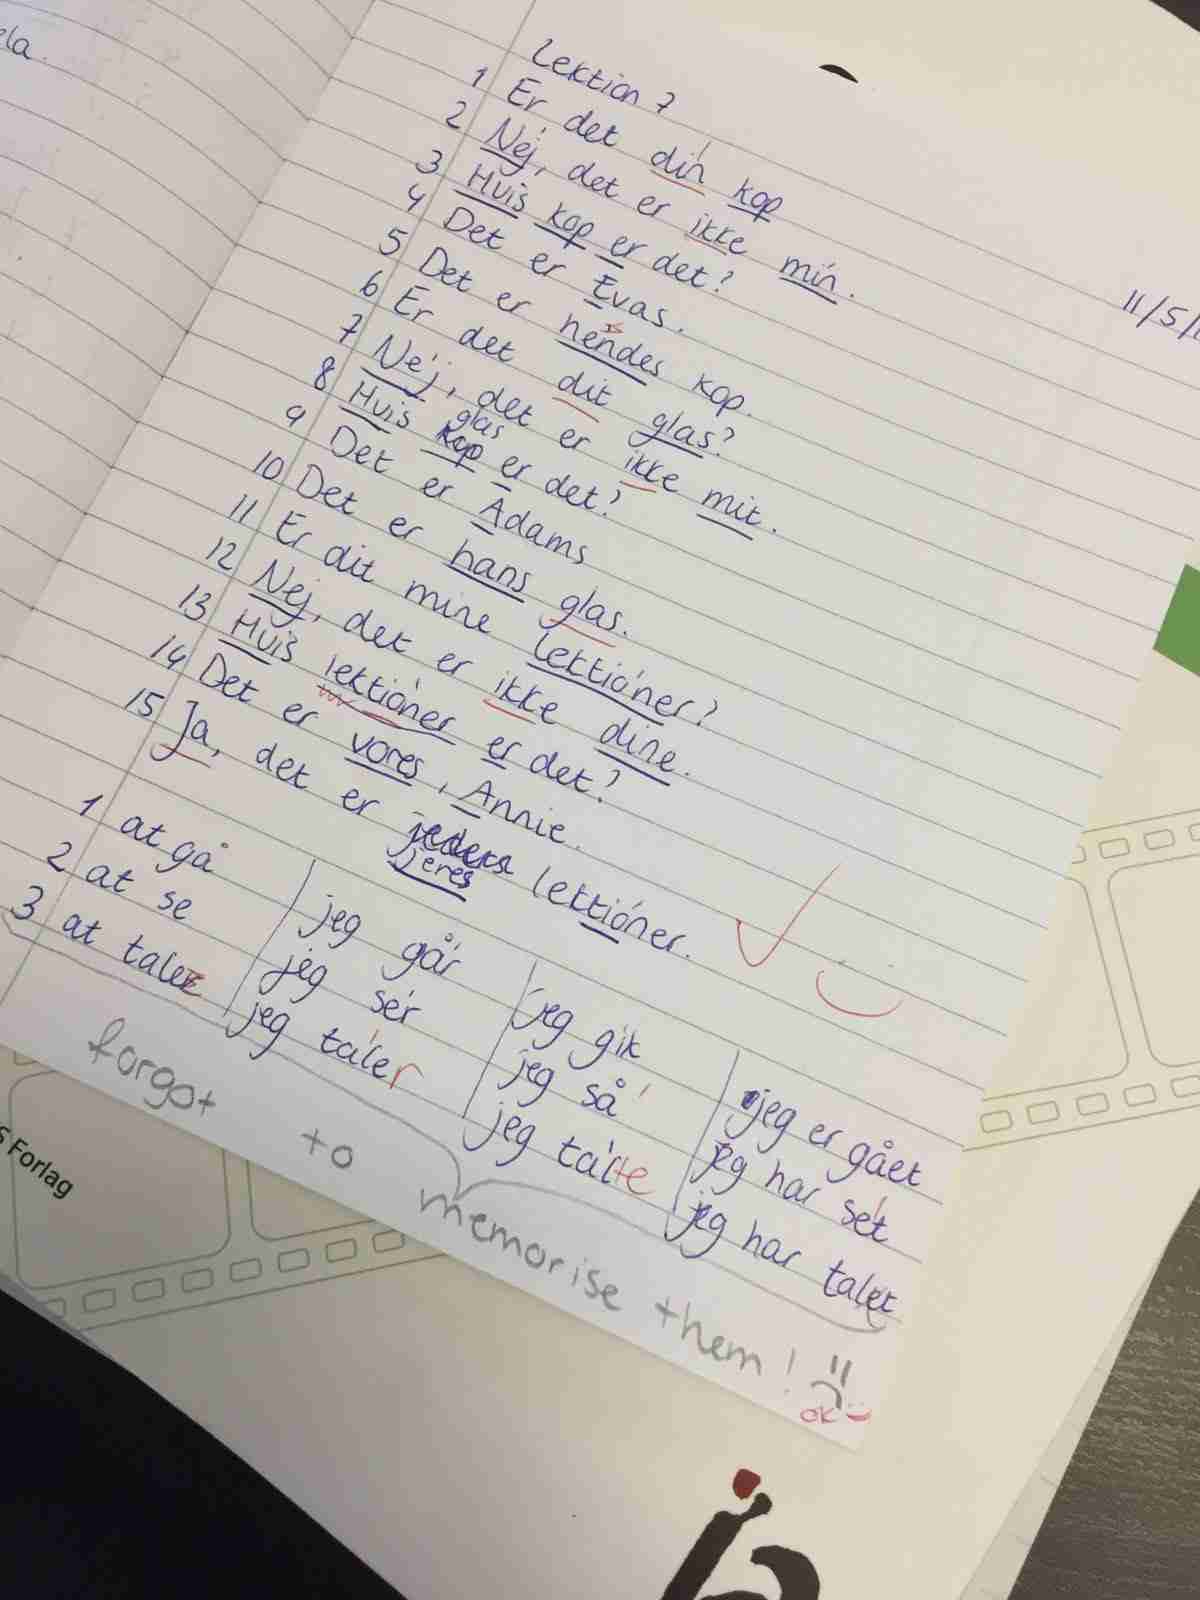 ela.
Lektion 7
11/5/
1 Er det din kop
2 Nej, det er ikke min.
3 Hvis kop er det?
4 Det er Evas.
5 Det er hendes kop.
6 Er det dit glas?
7 Nej, det er ikke mit.
8 Hvis kop glas er det?
9 Det er Adams
10 Det er hans glas.
11 Er dit mine lektioner?
12 Nej, det er ikke dine.
13 Hvis lektioner er det?
14 Det er vores, Annie.
15 Ja, det er jeres lektioner.
1 at gå jeg går jeg gik jeg er gået
2 at se jeg ser jeg så jeg har set
3 at tale jeg taler jeg talte jeg har talet
forgot to memorise them!
OK
s Forlag